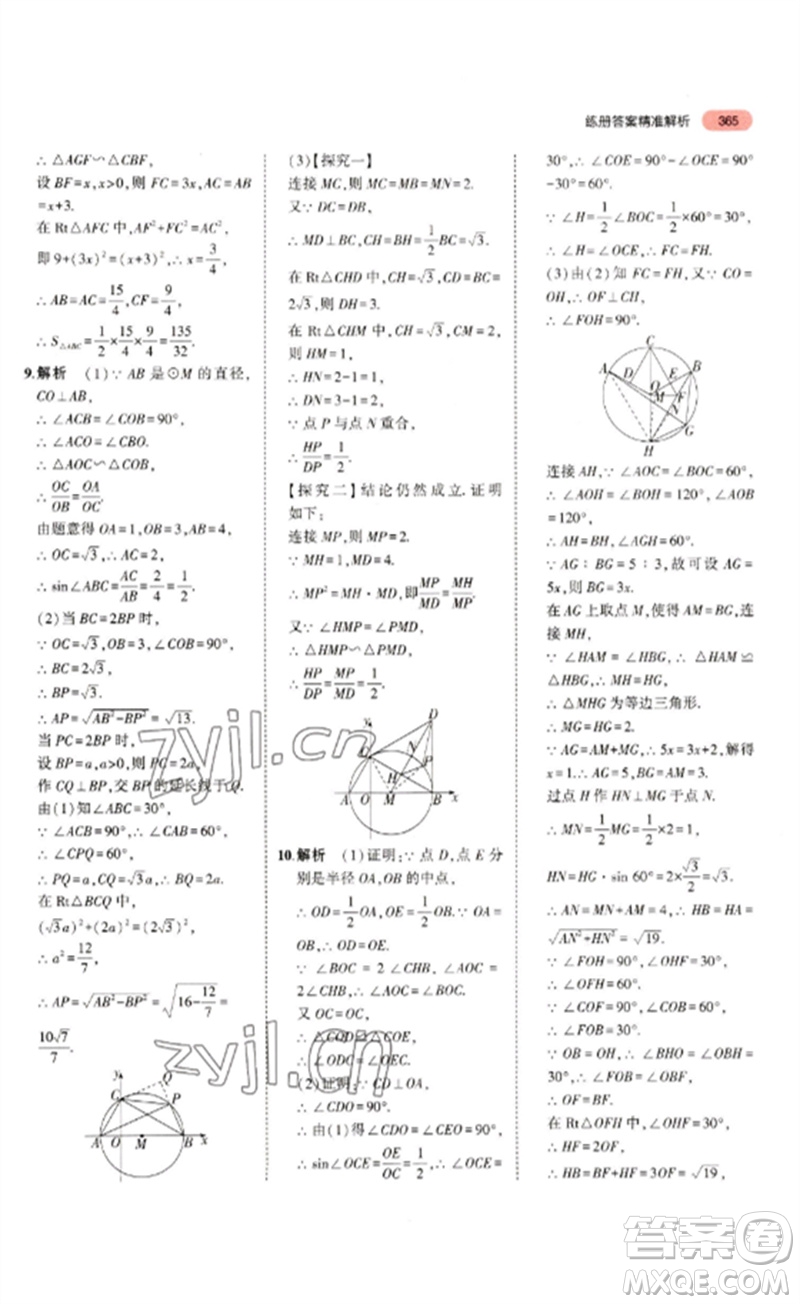 练册答案精准解析 365
∴ △AGF∽△CFB.
设 BF=x,x>0,则 FC=3x,AC=AB
=x+3.
在 Rt△AFC 中,AF²+FC²=AC²,
即 9+(3x)²=(x+3)²,∴ x=3/4,
∴ AB=AC=15/4,CF=9/4,
∴ S△ABC=1/2×15/4×9/4=135/32.
9.解析 (1)∵ AB 是⊙M 的直径,
CO⊥AB,
∴ ∠ACB=∠COB=90°,
∴ ∠ACO=∠CBO.
∴ △AOC∽△COB,
∴ OC/OB=OA/OC.
由题意得 OA=1,OB=3,AB=4,
∴ OC=√3,∴ AC=2,
∴ sin∠ABC=AC/AB=2/4=1/2.
(2)当 BC=2BP 时,
∵ OC=√3,OB=3,∠COB=90°,
∴ BC=2√3,
∴ BP=√3.
∴ AP=√(AB²-BP²)=√13.
当 PC=2BP 时,
设 BP=a,a>0,则 PC=2a,
作 CQ⊥BP,交 BP的延长线于Q.
由(1)知∠ABC=30°,
∵ ∠ACB=90°,∴ ∠CAB=60°,
∴ ∠CPQ=60°,
∴ PQ=a,CQ=√3a,BQ=2a.
在 Rt△BCQ 中,
(√3a)²+(2a)²=(2√3)²,
∴ a²=12/7,
∴ AP=√(AB²-BP²)=√(16-12/7)=
10√7/7.
y
Q
C
P
A O M B x
(3)【探究一】
连接 MC,则 MC=MB=MN=2.
又∵ DC=DB,
∴ MD⊥BC,CH=BH=1/2BC=√3.
在 Rt△CHD 中,CH=√3,CD=BC=
2√3,则 DH=3.
在 Rt△CHM 中,CH=√3,CM=2,
则 HM=1.
∴ HN=2-1=1,
∴ DN=3-1=2,
∵ 点 P 与点 N 重合,
∴ HP/DP=1/2.
【探究二】结论仍然成立.证明
如下:
连接 MP,则 MP=2,
∵ MH=1,MD=4,
∴ MP²=MH·MD,即MP/MD=MH/MP.
又∵ ∠HMP=∠PMD,
∴ △HMP∽△PMD,
∴ HP/DP=MP/MD=1/2.
y
D
C
H P
A O M B x
10.解析 (1)证明:∵ 点 D,点 E 分
别是半径 OA,OB 的中点,
∴ OD=1/2OA,OE=1/2OB.∵ OA=
OB,∴ OD=OE.
∵ ∠BOC = 2∠CHB, ∠AOC =
2∠CHB,∴ ∠AOC=∠BOC.
又 OC=OC,
∴ △COD≌△COE,
∴ ∠ODC=∠OEC.
(2)证明:∵ CD⊥OA,
∴ ∠CDO=90°,
∴ 由(1)得∠CDO=∠CEO=90°,
∴ sin∠OCE=OE/OC=1/2,∴ ∠OCE=
30°,∴ ∠COE=90°-∠OCE=90°
-30°=60°.
∵ ∠H=1/2∠BOC=1/2×60°=30°,
∴ ∠H=∠OCE,∴ FC=FH.
(3)由(2)知 FC=FH,又∵ CO=
OH,∴ OF⊥CH,
∴ ∠FOH=90°.
C
A B
D O E
M F
N
G
H
连接 AH,∵ ∠AOC=∠BOC=60°,
∴ ∠AOH = ∠BOH = 120°, ∠AOB
=120°,
∴ AH=BH,∠AGH=60°.
∵ AG:BG=5:3,故可设 AG=
5x,则 BG=3x.
在 AG 上取点 M,使得 AM=BG,连
接 MH,
∵ ∠HAM=∠HBG,∴ △HAM ≌
△HBG,∴ MH=HG,
∴ △MHG 为等边三角形.
∴ MG=HG=2.
∵ AG=AM+MG,∴ 5x=3x+2,解得
x=1,∴ AG=5,BG=AM=3,
过点 H 作HN⊥MG于点 N,
∴ MN=1/2MG=1/2×2=1,
HN=HG·sin 60°=2×√3/2=√3,
∴ AN=MN+AM=4,∴ HB=HA=
√(AN²+HN²)=√19.
∵ ∠FOH=90°,∠OHF=30°,
∴ ∠OFH=60°.
∵ ∠COF=90°,∠COB=60°,
∴ ∠FOB=30°.
∵ OB=OH,∴ ∠BHO=∠OBH
=30°,∴ ∠FOB=∠OBF,
∴ OF=BF.
在 Rt△OFH 中,∠OHF=30°,
∴ HF=2OF,
∴ HB=BF+HF=3OF=√19,
zyjl.cn
zyjl.cn
答案圈
MXQE.COM